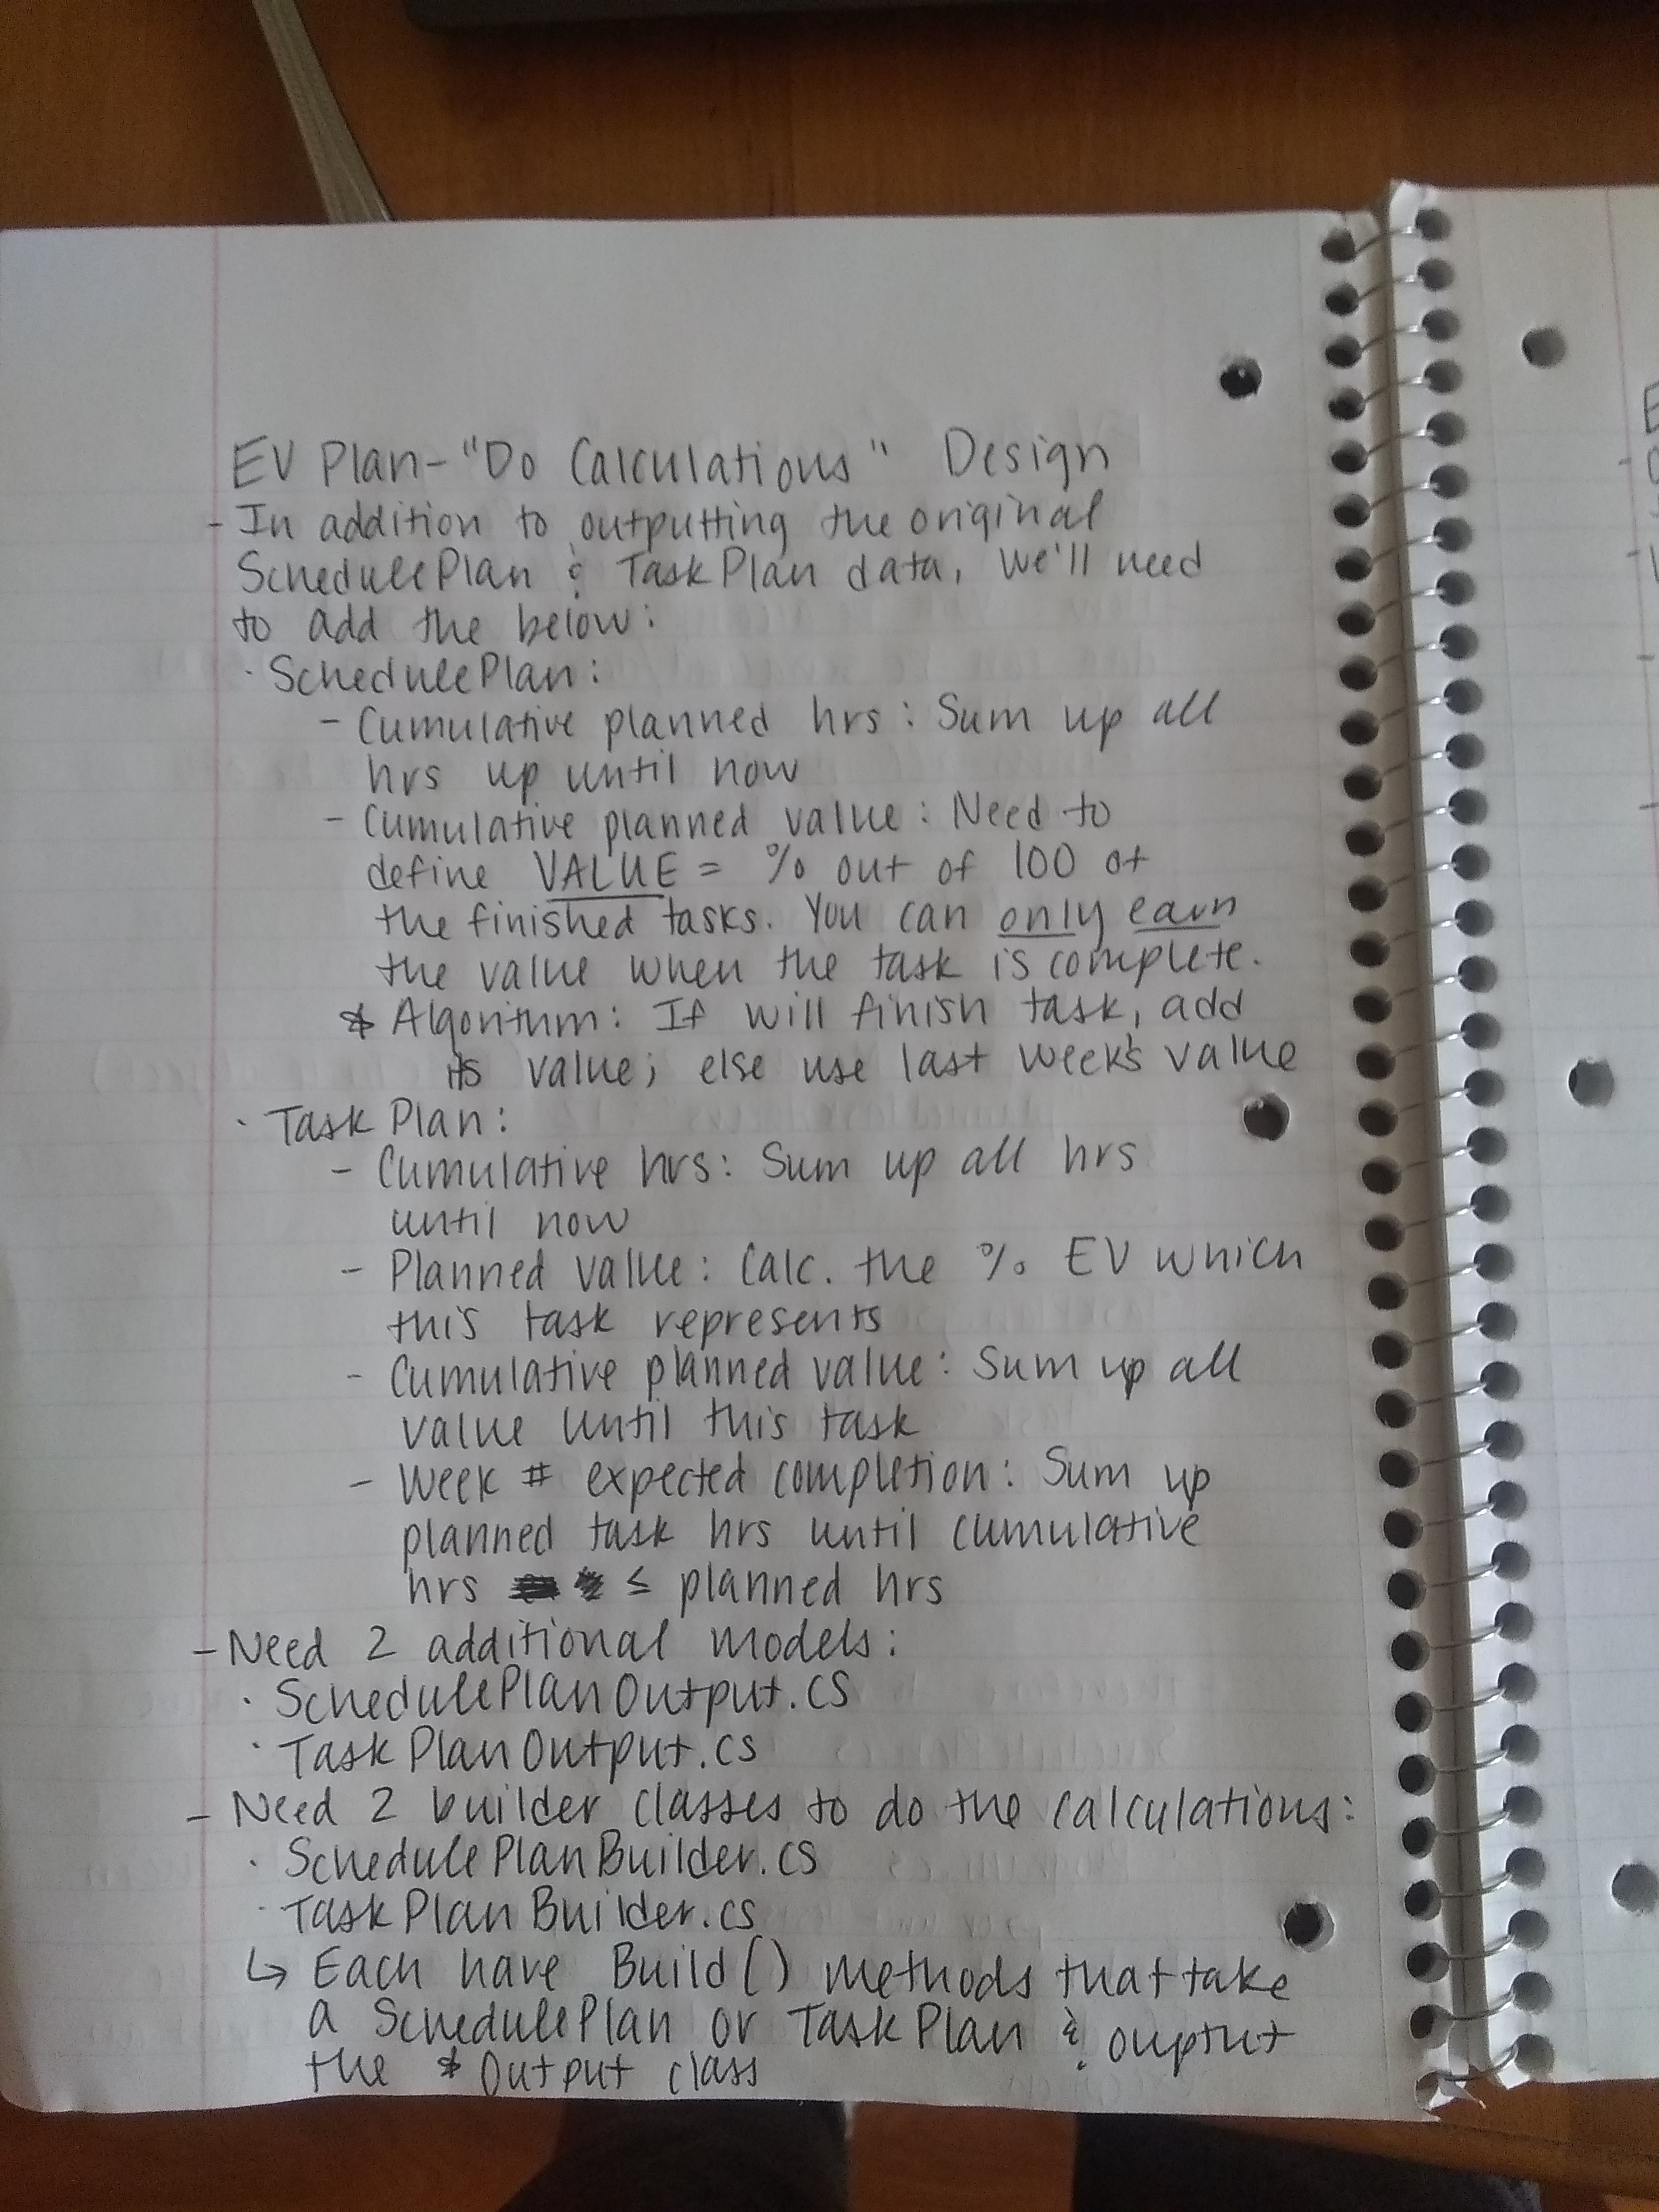 EV Plan - "Do Calculations" Design
- In addition to outputting the original
SchedulePlan & TaskPlan data, we'll need
to add the below:
· SchedulePlan:
- Cumulative planned hrs: Sum up all
hrs up until now
- Cumulative planned value: Need to
define VALUE = % out of 100 of
the finished tasks. You can only earn
the value when the task is complete.
* Algorithm: If will finish task, add
its value; else use last week's value
· TaskPlan:
- Cumulative hrs: Sum up all hrs
until now
- Planned value: Calc. the % EV which
this task represents
- Cumulative planned value: Sum up all
value until this task
- Week # expected completion: Sum up
planned task hrs until cumulative
hrs ≤ planned hrs
- Need 2 additional models:
· SchedulePlanOutput.cs
· TaskPlanOutput.cs
- Need 2 builder classes to do the calculations:
· SchedulePlanBuilder.cs
· TaskPlanBuilder.cs
↳ Each have Build() methods that take
a SchedulePlan or TaskPlan & ouptut
the * Output class